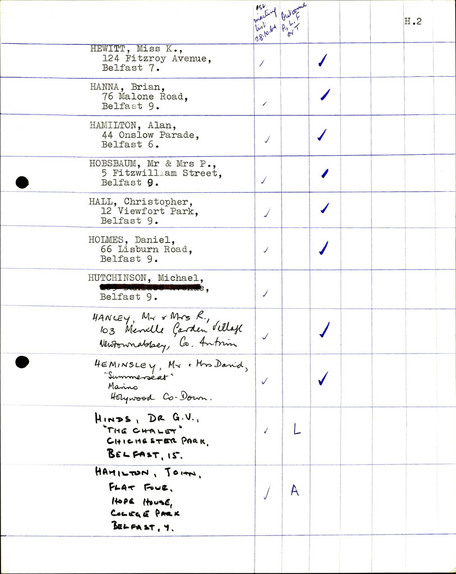 H.2
meeting
HEWITT, Miss K., ✓ ✓
124 Fitzroy Avenue,
Belfast 7.
HANNA, Brian, ✓ ✓
76 Malone Road,
Belfast 9.
HAMILTON, Alan, ✓ ✓
44 Onslow Parade,
Belfast 6.
HOBSBAUM, Mr & Mrs P., ✓ ✓
5 Fitzwilliam Street,
Belfast 9.
HALL, Christopher, ✓ ✓
12 Viewfort Park,
Belfast 9.
HOLMES, Daniel, ✓ ✓
66 Lisburn Road,
Belfast 9.
HUTCHINSON, Michael, ✓
Belfast 9.
HANLEY, Mr & Mrs R., ✓ ✓
103 Merville Garden Village
Newtownabbey, Co. Antrim
HEMINSLEY, Mr & Mrs David, ✓ ✓
"Summerseat"
Marino
Holywood Co-Down.
HINDS, DR G.V., ✓ L
"THE CHALET"
CHICHESTER PARK,
BELFAST, 15.
HAMILTON, JOHN, ✓ A
FLAT FOUR,
HOPE HOUSE,
COLLEGE PARK
BELFAST, 7.